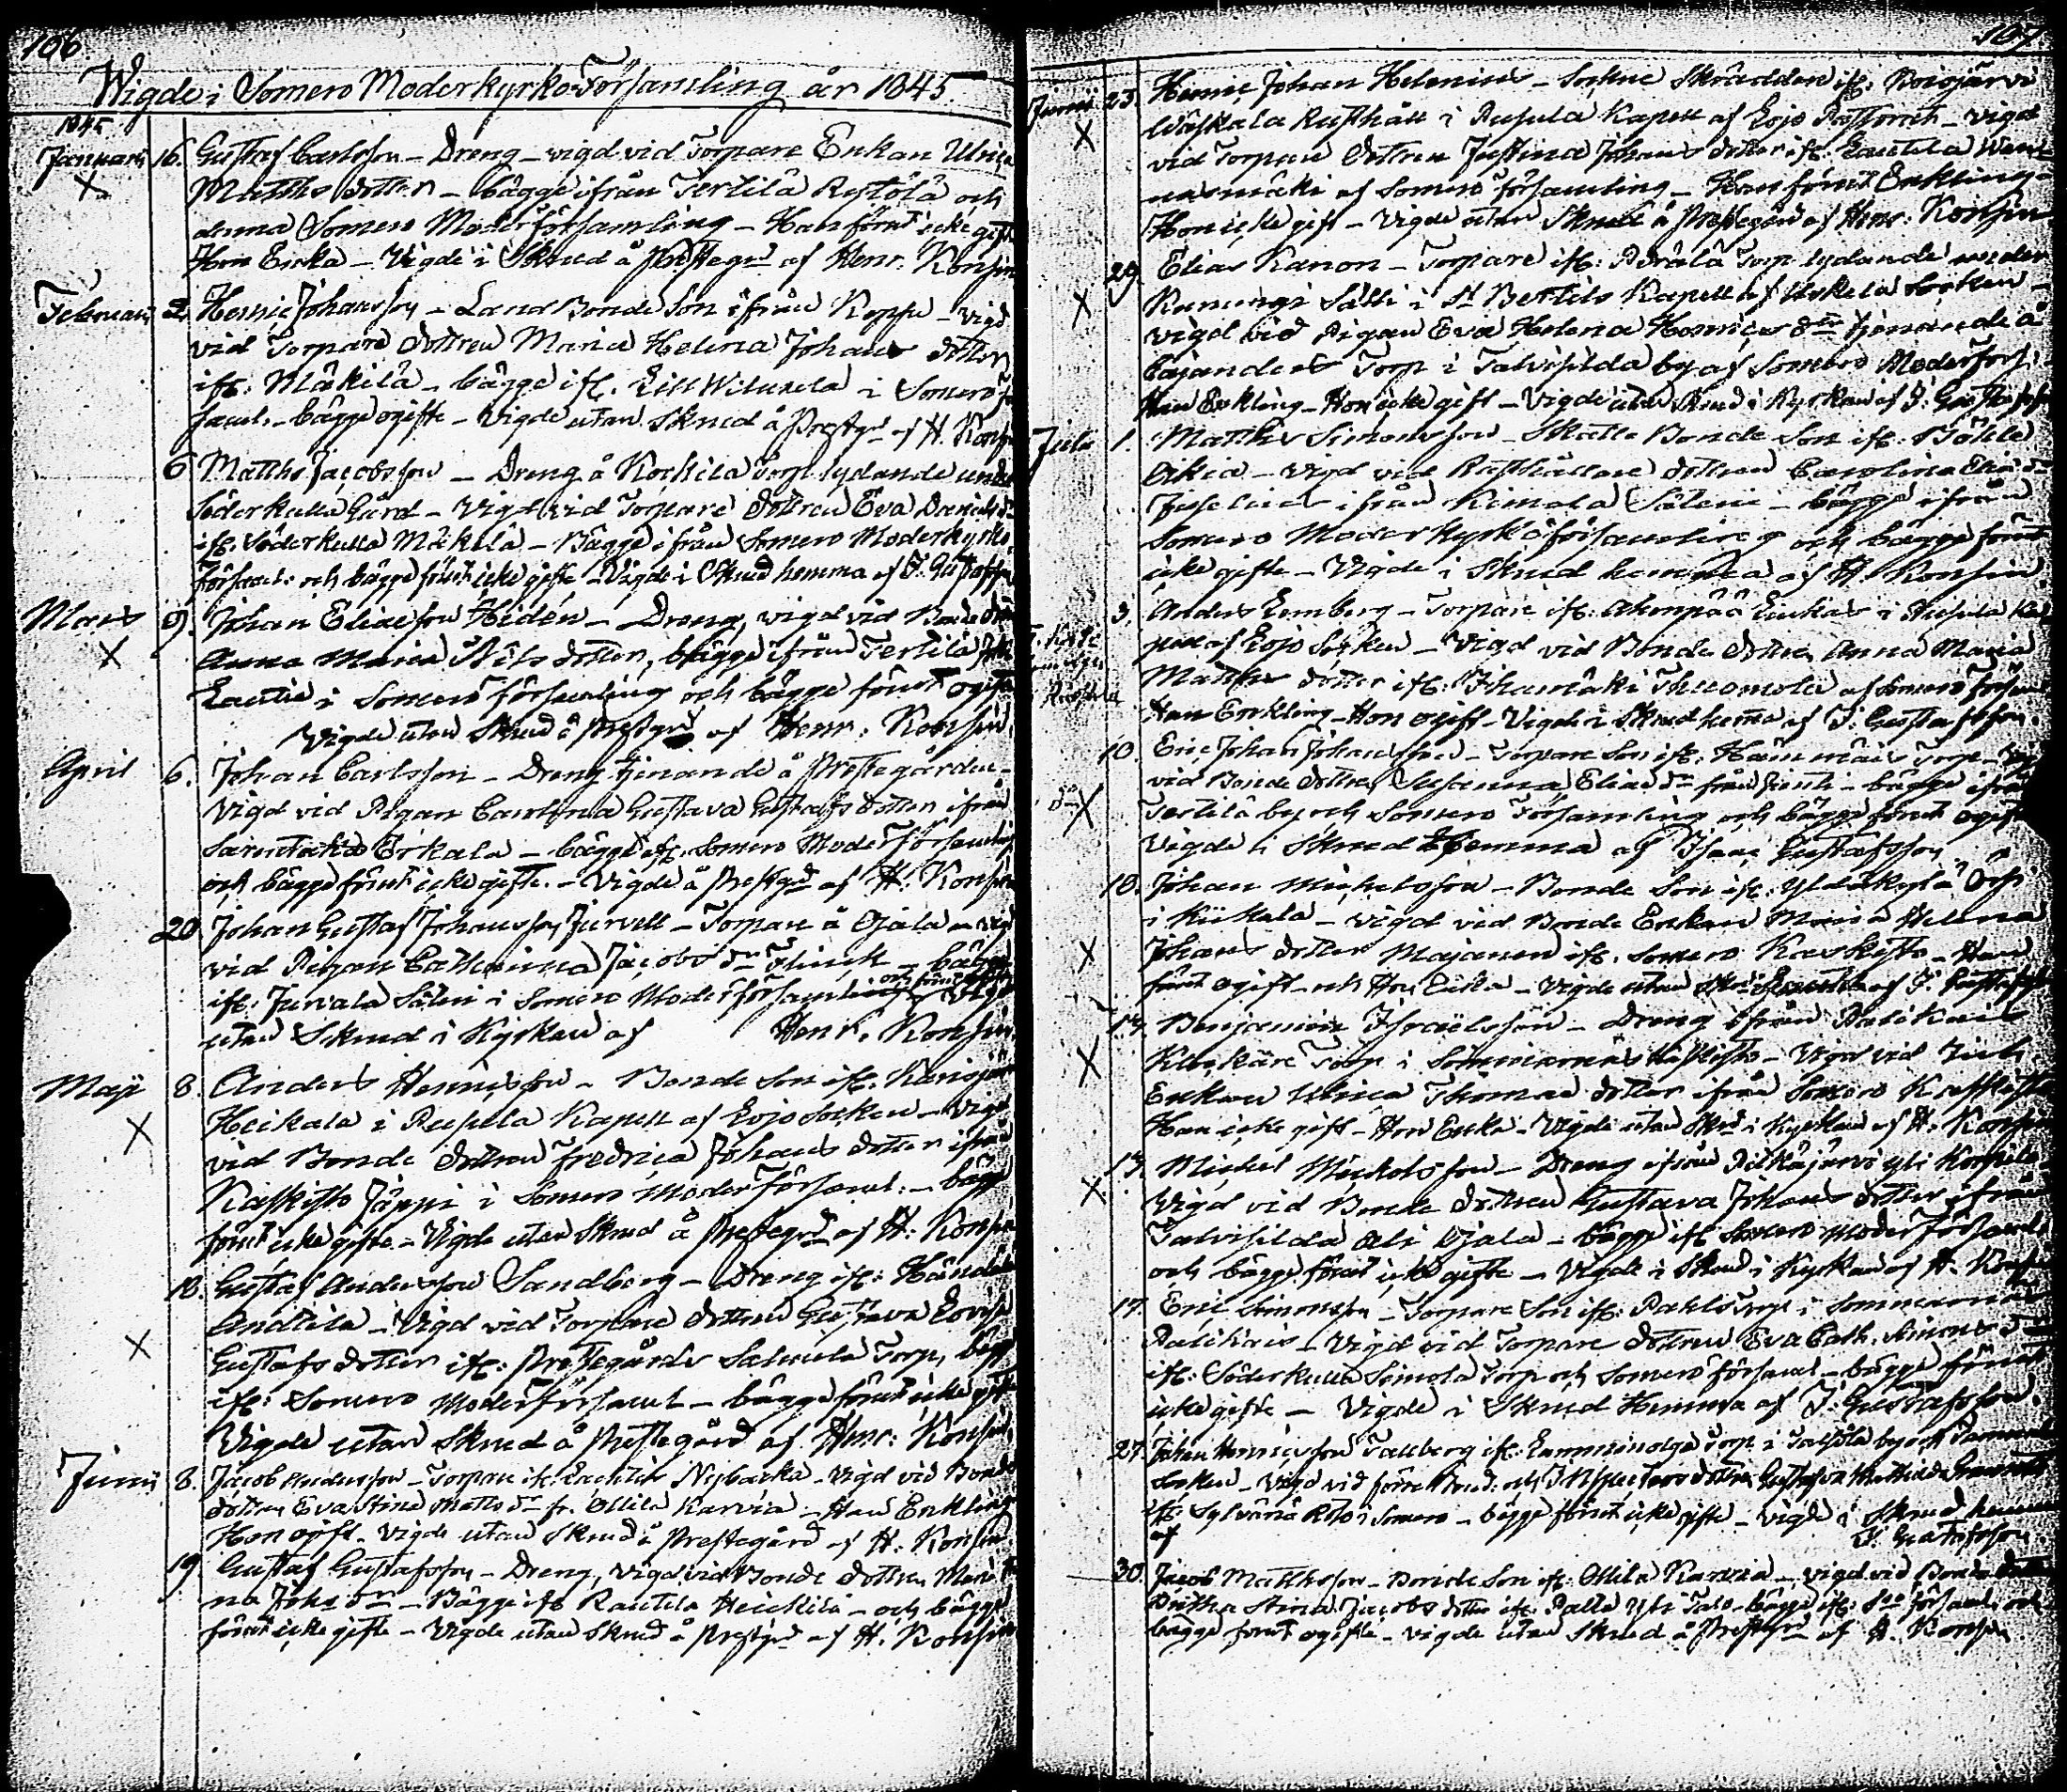 106
Wigde i Somero Moderkyrko-Församling år 1845
1845
Januari 16. Gustaf Carlsson – Dreng – vigd vid Torpare Enkan Ulrica
Matths dotter – bägge ifrån Terttilä Rostölä och
denna Somero Moderförsamling – Han förut icke gift
Hon Enka – Vigde i Skrud å Prestegrd af Henr. Konsin
Februari 2. Henric Johansson – Land Bonde Son ifrån Koppe – vigd
vid Torpare dottren Maria Helena Johans dotter
ifr. Mäkilä – bägge ifr. Lill Wiluxela i Somero
saml. – bägge ogifte – Vigde utan Skrud å Prestgd af H. Konsin
6 Matths Jacobsson – Dreng å Torp lydande under
Söderkulla Gård – Vigd vid Torpare dottren Eva Daniels dr
ifr. Söderkulla Mäkilä – Bägge ifrån Somero Moderkyrko
Församl: och bägge förut icke gifte – Vigde i Skrud hemma af I. Gustafsson
Mars 9. Johan Eliasson Hidén – Dreng, vigd vid Bonde
Anna Maria Nils dotter, bägge ifrån Terttilä
Lautia i Somero församling och bägge förut ogifte
Vigde utan Skrud å Prestgrd af Henr. Konsin
April 6. Johan Carlsson – Dreng tjenande å Prestegården –
Vigd vid Pigan Carolina Gustava Gustafs dotter ifrån
Särintaka Erkala – bägge ifr. Somero Moderförsamling
och bägge förut icke gifte. – Vigde å Prestgd af H. Konsin
20 Johan Gustaf Johansson Jurvell – Torpare å Ojala – vigd
vid Pigan Catharina Jacobs dr Flinck – bägge
ifr. Jurvala Säteri i Somero Moderförsamling och förut – Vigde
utan Skrud i Kyrkan af Henr. Konsin
Maji 8. Anders Henricsson – Bonde Son ifr.
Heikala i Pusula Kapell af Lojo Socken – vigd
vid Bonde dottren Fredrica Johans dotter ifrån
Kaskisto Jäppi i Somero Moderförsaml: – bägge
förut icke gifte – Vigde utan Skrud å Prestegrd af H. Konsin
18. Gustaf Andersson Sandberg – Dreng ifr:
Anttila – Vigd vid Torpare dottren Gustava Lovisa
Gustafs dotter ifr: Prestegårds Torp, bägge
ifr: Somero Moderförsaml – bägge förut icke gifte
Vigde utan Skrud å Prestegård af Henr: Konsin
Junii 8. Jacob Andersson – Torpare ifr. Nybacka – Vigd vid Bonde
dottren Eva Stina Matts dr fr. Ollila Karvia – Han Enkling
Hon ogift. Vigde utan Skrud å Prestegård af H. Konsin
19 Gustaf Gustafsson – Dreng, vigd vid Bonde dottren
na Johs dr – Bägge ifr Rautela Heickilä – och bägge
förut icke gifte – Vigde utan Skrud å Prestgrd af H. Konsin
107
Junii 23. Henric Johan Helenius – Sockne Skräddare ifr: Koisjärvi
Rusthåll i Pusula Kapell af Lojo – vigd
vid Torpare dottren Justina Johans dotter ifr: Lautela
mäki af Somero församling – Han förut Enkling –
Hon icke gift – Vigde utan Skrud å Prestegård af Henr: Konsin
29. Elias Kanon – Torpare ifr: Perälä Torp lydande under
Kaningi Sätri i St Bertils Kapell af Uskela Socken –
vigd vid Pigan Eva Helena Henrics dr tjenande å
Cajanders Torp i Talvisilda by af Somero Moderförs.
Han Enkling – Hon icke gift – Vigde utan Skrud i Kyrkan af I. Gustafsson
Julii 1. Matths Simonsson – Skatte Bonde Son ifr:
Oikia – Vigd vid Rusthållare dottren Carolina Elias dr
Juselius ifrån Kimala Säteri – bägge ifrån
Somero Moderkyrkoförsamling och bägge förut
icke gifte – Vigde i Skrud hemma af H. Konsin
3. Anders Lemberg – Torpare ifr: Ahonpää i Pusula
pell af Lojo Socken – Vigd vid Bonde dottren Anna Maria
Matths dotter ifr: Ihamäki Thuomola af Somero Försam
Han Enkling – Hon ogift – Vigde i Skrud hemma af I. Gustafsson.
10. Eric Johan Johansson – Torpare Son ifr. Torp –
vid Bonde dottren Susanna Elias dr från – bägge ifrån
Terttilä by och Somero Församling och bägge förut ogifte
Vigde i Skrud Hemma af Isaac Gustafsson
10. Johan Michelsson – Bonde Son ifr: Yldäkylä
i Kiikala – vigd vid Bonde Enkan Maria Helena
Johans dotter Majanen ifr. Somero Kaskisto – Han
förut ogift – och Hon Enka – Vigde utan af I. Gustafsson
13. Benjamin Israelsson – Dreng ifrån Palikais
Torp i Sommarnäs – Vigd vid
Enkan Ulrica Thomas dotter ifrån Somero Kaskisto
Han icke gift – Hon Enka – Vigde utan Skrd i Kyrkan af H. Konsin
13. Michel Michelsson – Dreng ifrån Pitkäjärvi yli
Vigd vid Bonde dottren Gustava Johans dotter ifrån
Talvisilda Ali Ojala – bägge ifr Somero Moderförsaml
och bägge förut icke gifte – Vigde i Skrud i Kyrkan af H. Konsin
17. Eric Simonsson – Torpare Son ifr: Torp i Sommarnäs
Palikais – Vigd vid Torpare dottren Eva Cath. Simons dr
ifr: Söderkulla Simola Torp och Somero församl – bägge förut
icke gifte – Vigde i Skrud Hemma af I. Gustafsson.
27. Johan Henricsson Tallberg ifr: Torp i by och
Socken – Vigd vid förre och Inspectors dottren Gustafva Mathilda
ifr. Sylvänä i Somero – bägge förut icke gifte – vigde i Skrud hemma
af I. Gustafsson
30. Jacob Mathsson – Bonde Son ifr: Ollila Karvia – vigd vid Bonde
Britha Stina Jacobs dotter ifr: Palla Yli Talo – bägge ifr: Soo församl. och
bägge förut ogifte – vigde utan Skrud å Prestgrd af H. Konsin